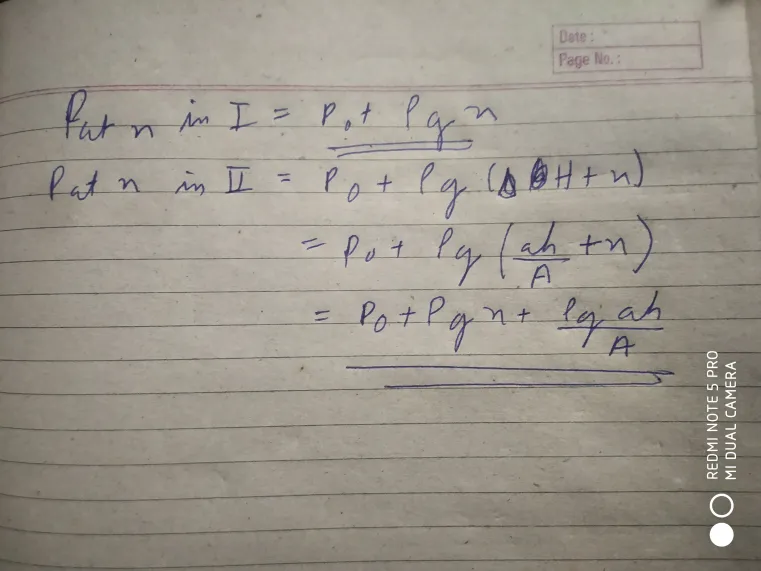 Date :
Page No. :
P at x in I = P₀ + ρg x
P at x in II = P₀ + ρg (H + x)
= P₀ + ρg (ah/A + x)
= P₀ + ρg x + ρg ah/A
REDMI NOTE 5 PRO
MI DUAL CAMERA